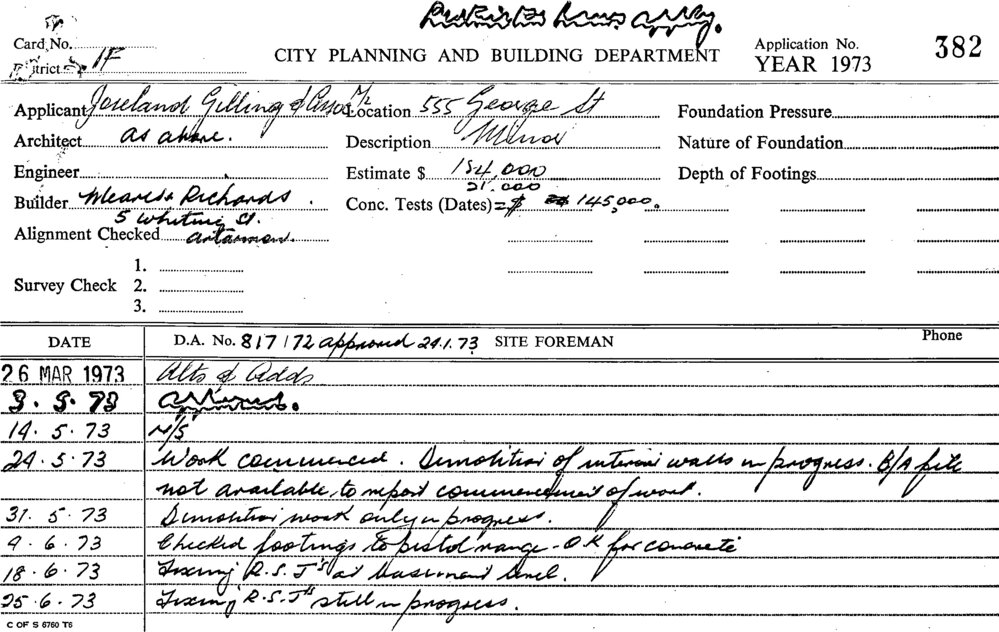 Card No.
CITY PLANNING AND BUILDING DEPARTMENT
Application No. 382
District 1F
YEAR 1973
Applicant Joseland Gilling & Assoc. Location 555 George St Foundation Pressure
Architect as above. Description Minor Nature of Foundation
Engineer Estimate $ 184,000 Depth of Footings
21.000
Builder Meares & Richards. Conc. Tests (Dates) = $ 145,000.
5 Whiting St.
Alignment Checked Artarmon.
1.
Survey Check 2.
3.
DATE D.A. No. 817/72 approved 24.1.73 SITE FOREMAN Phone
26 MAR 1973 Alts & Adds
3.5.73 Approved.
14.5.73 N/S
24.5.73 Work commenced. Demolition of interior walls in progress. B/A file
not available to report commencement of work.
31.5.73 Demolition work only in progress.
9.6.73 Checked footings to pistol range - OK for concrete
18.6.73 Fixing R.S.J's at basement level.
25.6.73 Fixing R.S.J's still in progress.
C OF S 6760 T6